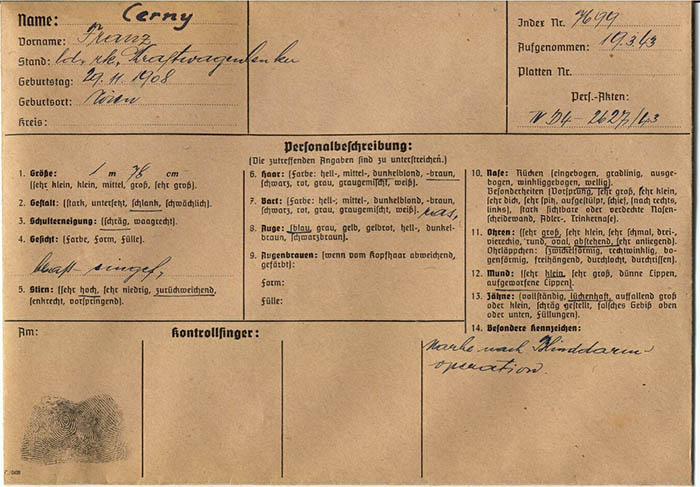 Name: Cerny
Vorname: Franz
Stand: led. rk. Kraftwagenlenker
Geburtstag: 29.11.1908
Geburtsort: Wien
Kreis:
Index Nr. 7699
Aufgenommen: 19.3.43
Platten Nr.
Pers.-Akten:
IV D4 - 2627/43
Personalbeschreibung:
(Die zutreffenden Angaben sind zu unterstreichen.)
1. Größe: 1 m 78 cm
(sehr klein, klein, mittel, groß, sehr groß).
2. Gestalt: (stark, untersetzt, schlank, schwächlich).
3. Schulterneigung: (schräg, waagrecht).
4. Gesicht: (Farbe, Form, Fülle).
5. Stirn: (sehr hoch, sehr niedrig, zurückweichend,
senkrecht, vorspringend).
6. Haar: (Farbe: hell-, mittel-, dunkelblond, -braun,
schwarz, rot, grau, graugemischt, weiß).
7. Bart: (Farbe: hell-, mittel-, dunkelblond, -braun,
schwarz, rot, grau, graugemischt, weiß). ras.
8. Auge: (blau, grau, gelb, gelbrot, hell-, dunkel-
braun, schwarzbraun).
9. Augenbrauen: (wenn vom Kopfhaar abweichend,
gefärbt):
Form:
Fülle:
10. Nase: Rücken (eingebogen, gradlinig, ausge-
bogen, winkliggebogen, wellig).
Besonderheiten (Vorsprung, sehr groß, sehr klein,
sehr dick, sehr spitz, aufgestülpt, schief, (nach rechts,
links), stark sichtbare oder verdeckte Nasen-
scheidewand, Adler-, Trinkernase).
11. Ohren: (sehr groß, sehr klein, sehr schmal, drei-,
viereckig, rund, oval, abstehend, sehr anliegend).
Ohrläppchen: (zwickelförmig, rechtwinklig, bo-
genförmig, freihängend, durchlocht, durchrissen).
12. Mund: (sehr klein, sehr groß, dünne Lippen,
aufgeworfene Lippen).
13. Zähne: (vollständig, lückenhaft, auffallend groß
oder klein, schräg gestellt, falsches Gebiß oben
oder unten, Füllungen).
14. Besondere Kennzeichen:
Narbe nach Blinddarm-
operation.
Am:
Kontrollfinger: